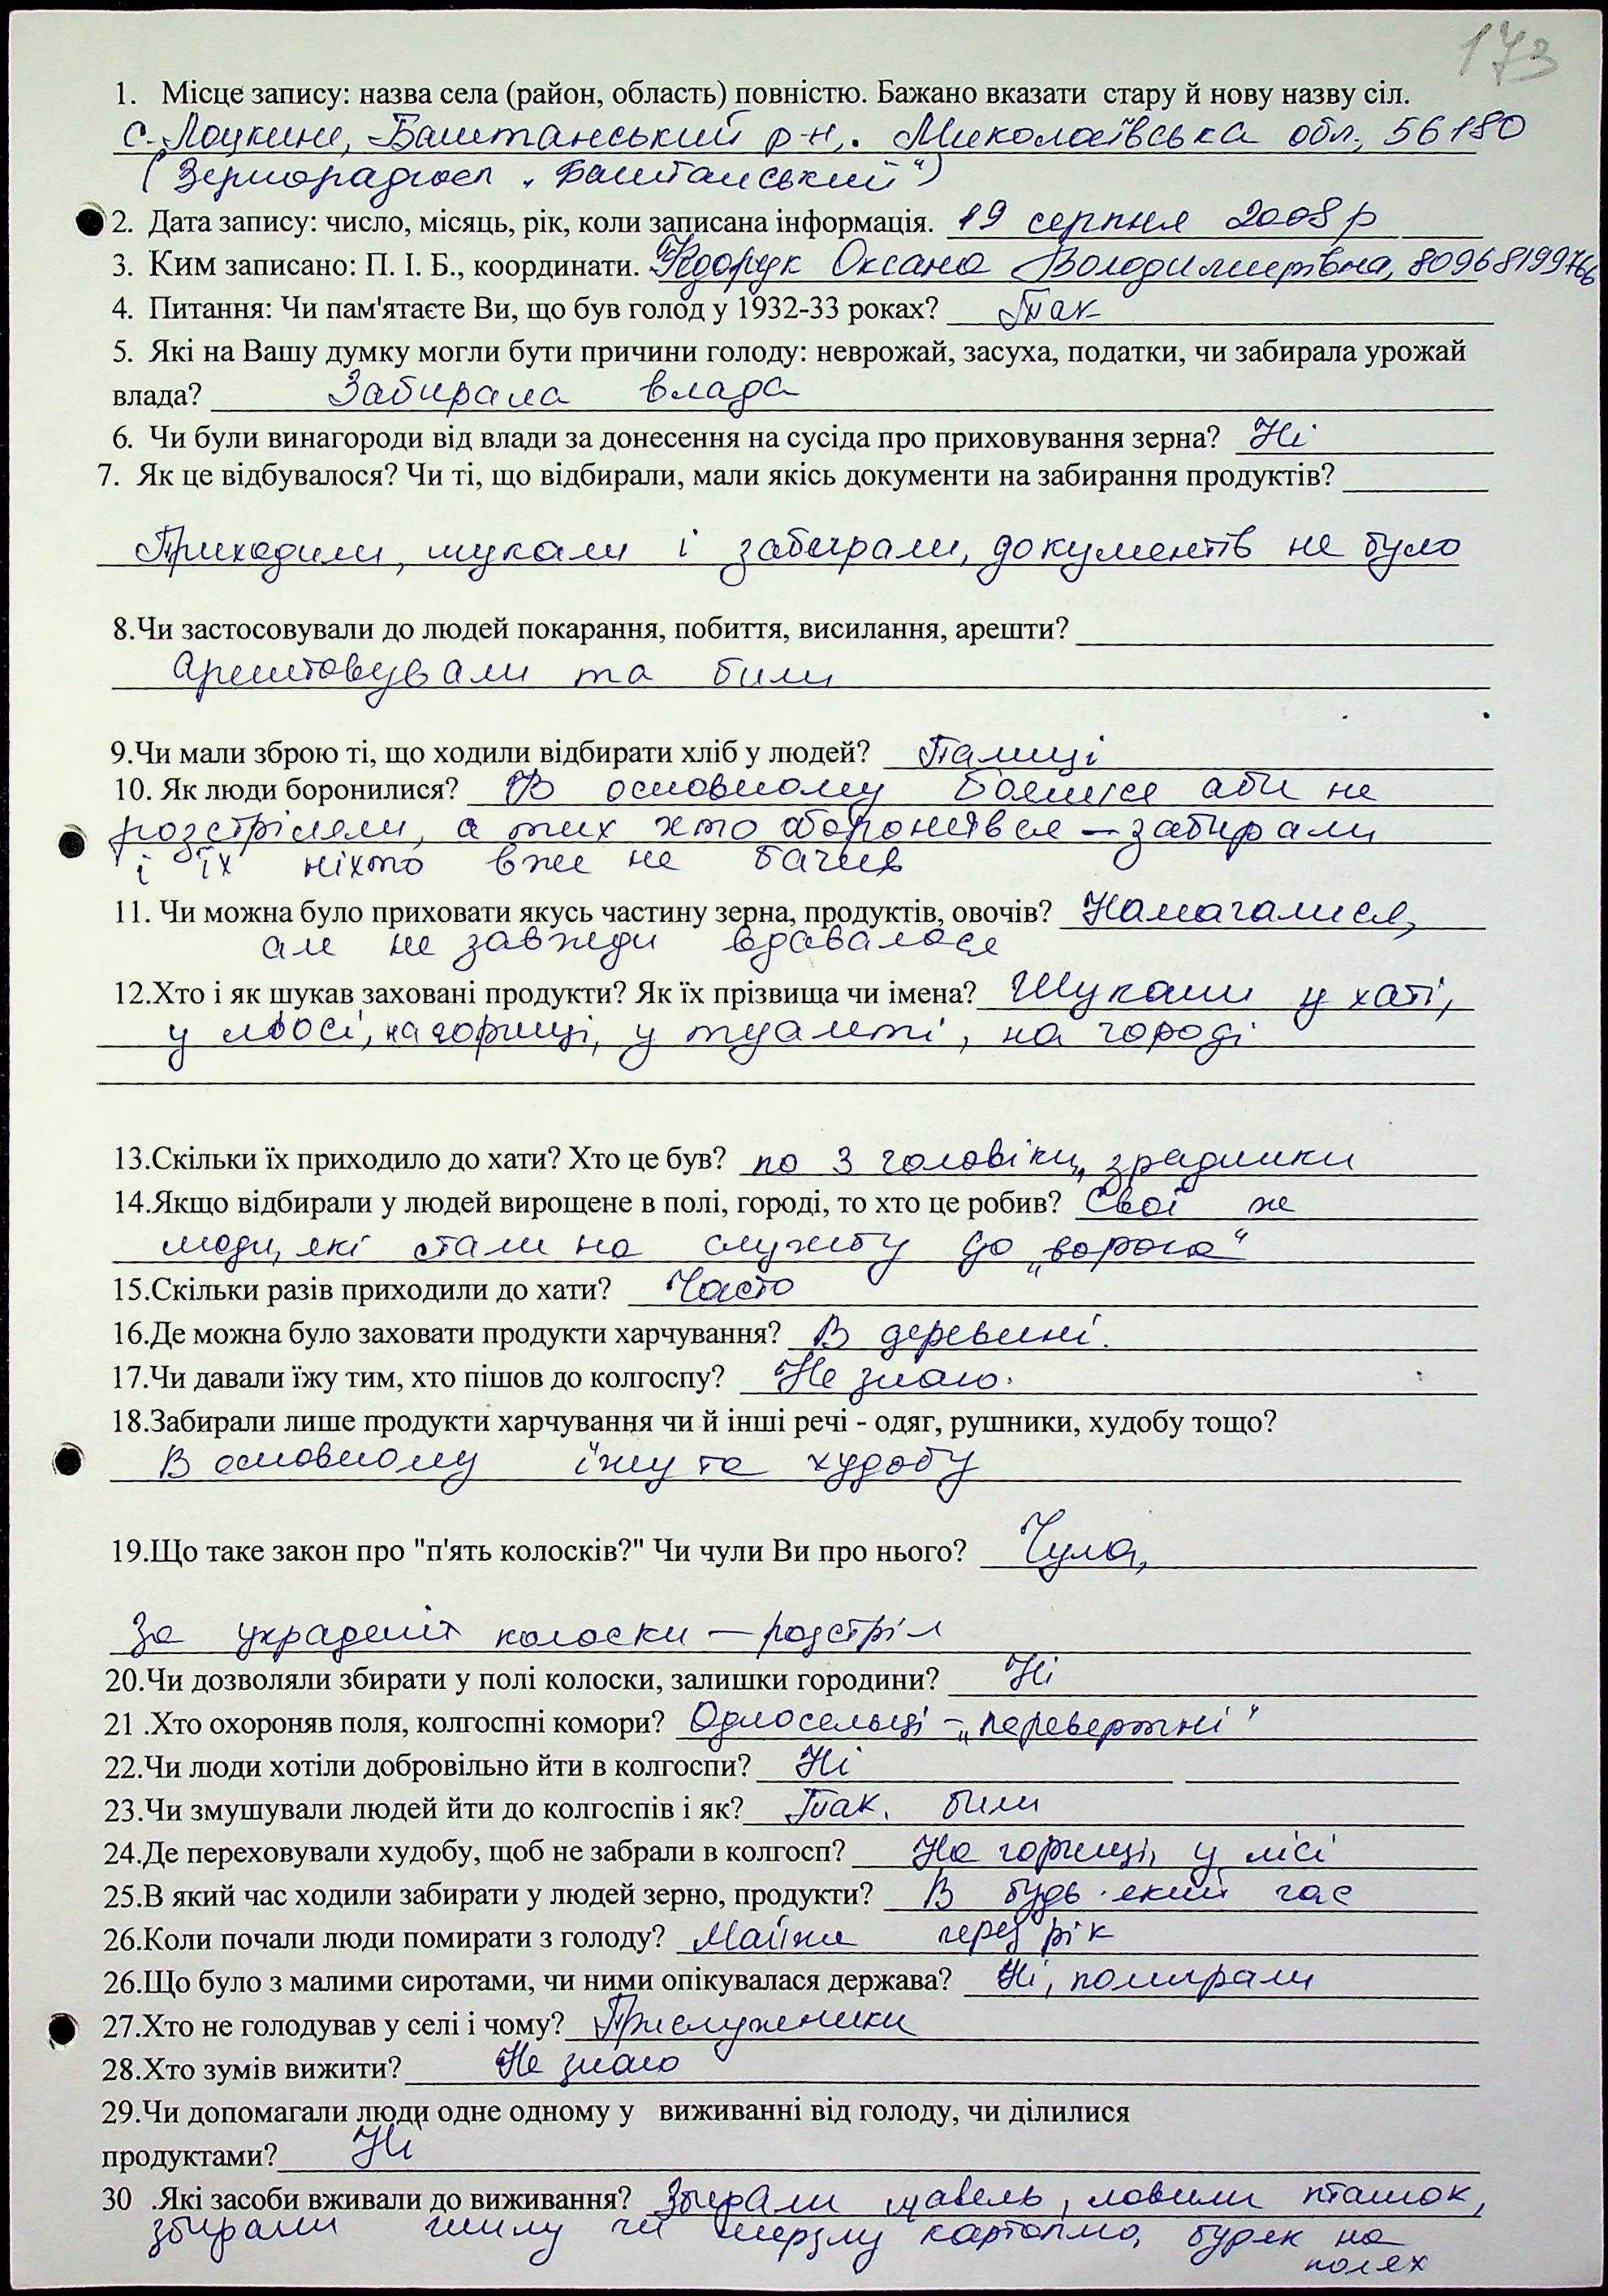 173
1. Місце запису: назва села (район, область) повністю. Бажано вказати стару й нову назву сіл.
с. Лоцкине, Баштанський р-н,. Миколаївська обл., 56180
(Зернорадгосп „Баштанський")
2. Дата запису: число, місяць, рік, коли записана інформація. 19 серпня 2008 р
3. Ким записано: П. І. Б., координати. Оксана Володимирівна, 80968199766
4. Питання: Чи пам'ятаєте Ви, що був голод у 1932-33 роках? Так
5. Які на Вашу думку могли бути причини голоду: неврожай, засуха, податки, чи забирала урожай
влада? Забирала влада
6. Чи були винагороди від влади за донесення на сусіда про приховування зерна? Ні
7. Як це відбувалося? Чи ті, що відбирали, мали якісь документи на забирання продуктів?
Приходили, шукали і забирали, документів не було
8.Чи застосовували до людей покарання, побиття, висилання, арешти?
Арештовували та били
9.Чи мали зброю ті, що ходили відбирати хліб у людей? Палиці
10. Як люди боронилися? В основному боялися аби не
розстріляли, а тих хто оборонявся – забирали
і їх ніхто вже не бачив
11. Чи можна було приховати якусь частину зерна, продуктів, овочів? Намагалися,
але не завжди вдавалося
12.Хто і як шукав заховані продукти? Як їх прізвища чи імена? Шукали у хаті,
у льосі, на горищі, у туалеті, на городі
13.Скільки їх приходило до хати? Хто це був? по 3 чоловіки, зрадники
14.Якщо відбирали у людей вирощене в полі, городі, то хто це робив? Свої же
люди, які стали на службу до „ворога"
15.Скільки разів приходили до хати? Часто
16.Де можна було заховати продукти харчування? В деревині.
17.Чи давали їжу тим, хто пішов до колгоспу? Не знаю.
18.Забирали лише продукти харчування чи й інші речі - одяг, рушники, худобу тощо?
В основному їжу та худобу
19.Що таке закон про "п'ять колосків?" Чи чули Ви про нього? Чула,
За украдені колоски – розстріл
20.Чи дозволяли збирати у полі колоски, залишки городини? Ні
21 .Хто охороняв поля, колгоспні комори? Односельці – „перевертні"
22.Чи люди хотіли добровільно йти в колгоспи? Ні
23.Чи змушували людей йти до колгоспів і як? Так. били
24.Де переховували худобу, щоб не забрали в колгосп? На горищі, у лісі
25.В який час ходили забирати у людей зерно, продукти? В будь-який час
26.Коли почали люди помирати з голоду? Майже через рік
26.Що було з малими сиротами, чи ними опікувалася держава? Ні, помирали
27.Хто не голодував у селі і чому? Прислужники
28.Хто зумів вижити? Не знаю
29.Чи допомагали люди одне одному у виживанні від голоду, чи ділилися
продуктами? Ні
30 .Які засоби вживали до виживання? Збирали щавель, ловили пташок,
збирали гнилу чи мерзлу картоплю, буряк на
полях